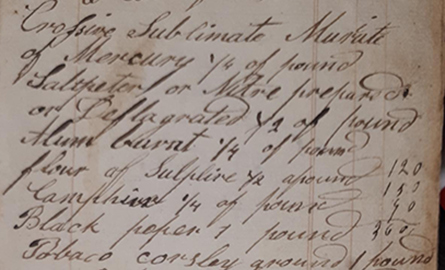 Crosive Sublimate Muriite
of Mercury 1/4 of pound
Saltpeter or Nitre prepard
or Deflagrated 1/2 of pound
Alum burnt 1/4 of pound
flour of Sulphire 1/2 apound 120
Camphire 1/4 of pound
Black peper 1 pound 360
Tobaco corsley ground 1 pound